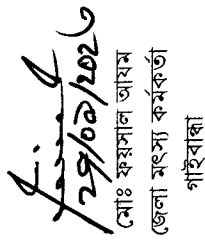 ২৭/০৯/২০২৩
মোঃ ফয়সাল আযম
জেলা মৎস্য কর্মকর্তা
গাইবান্ধা